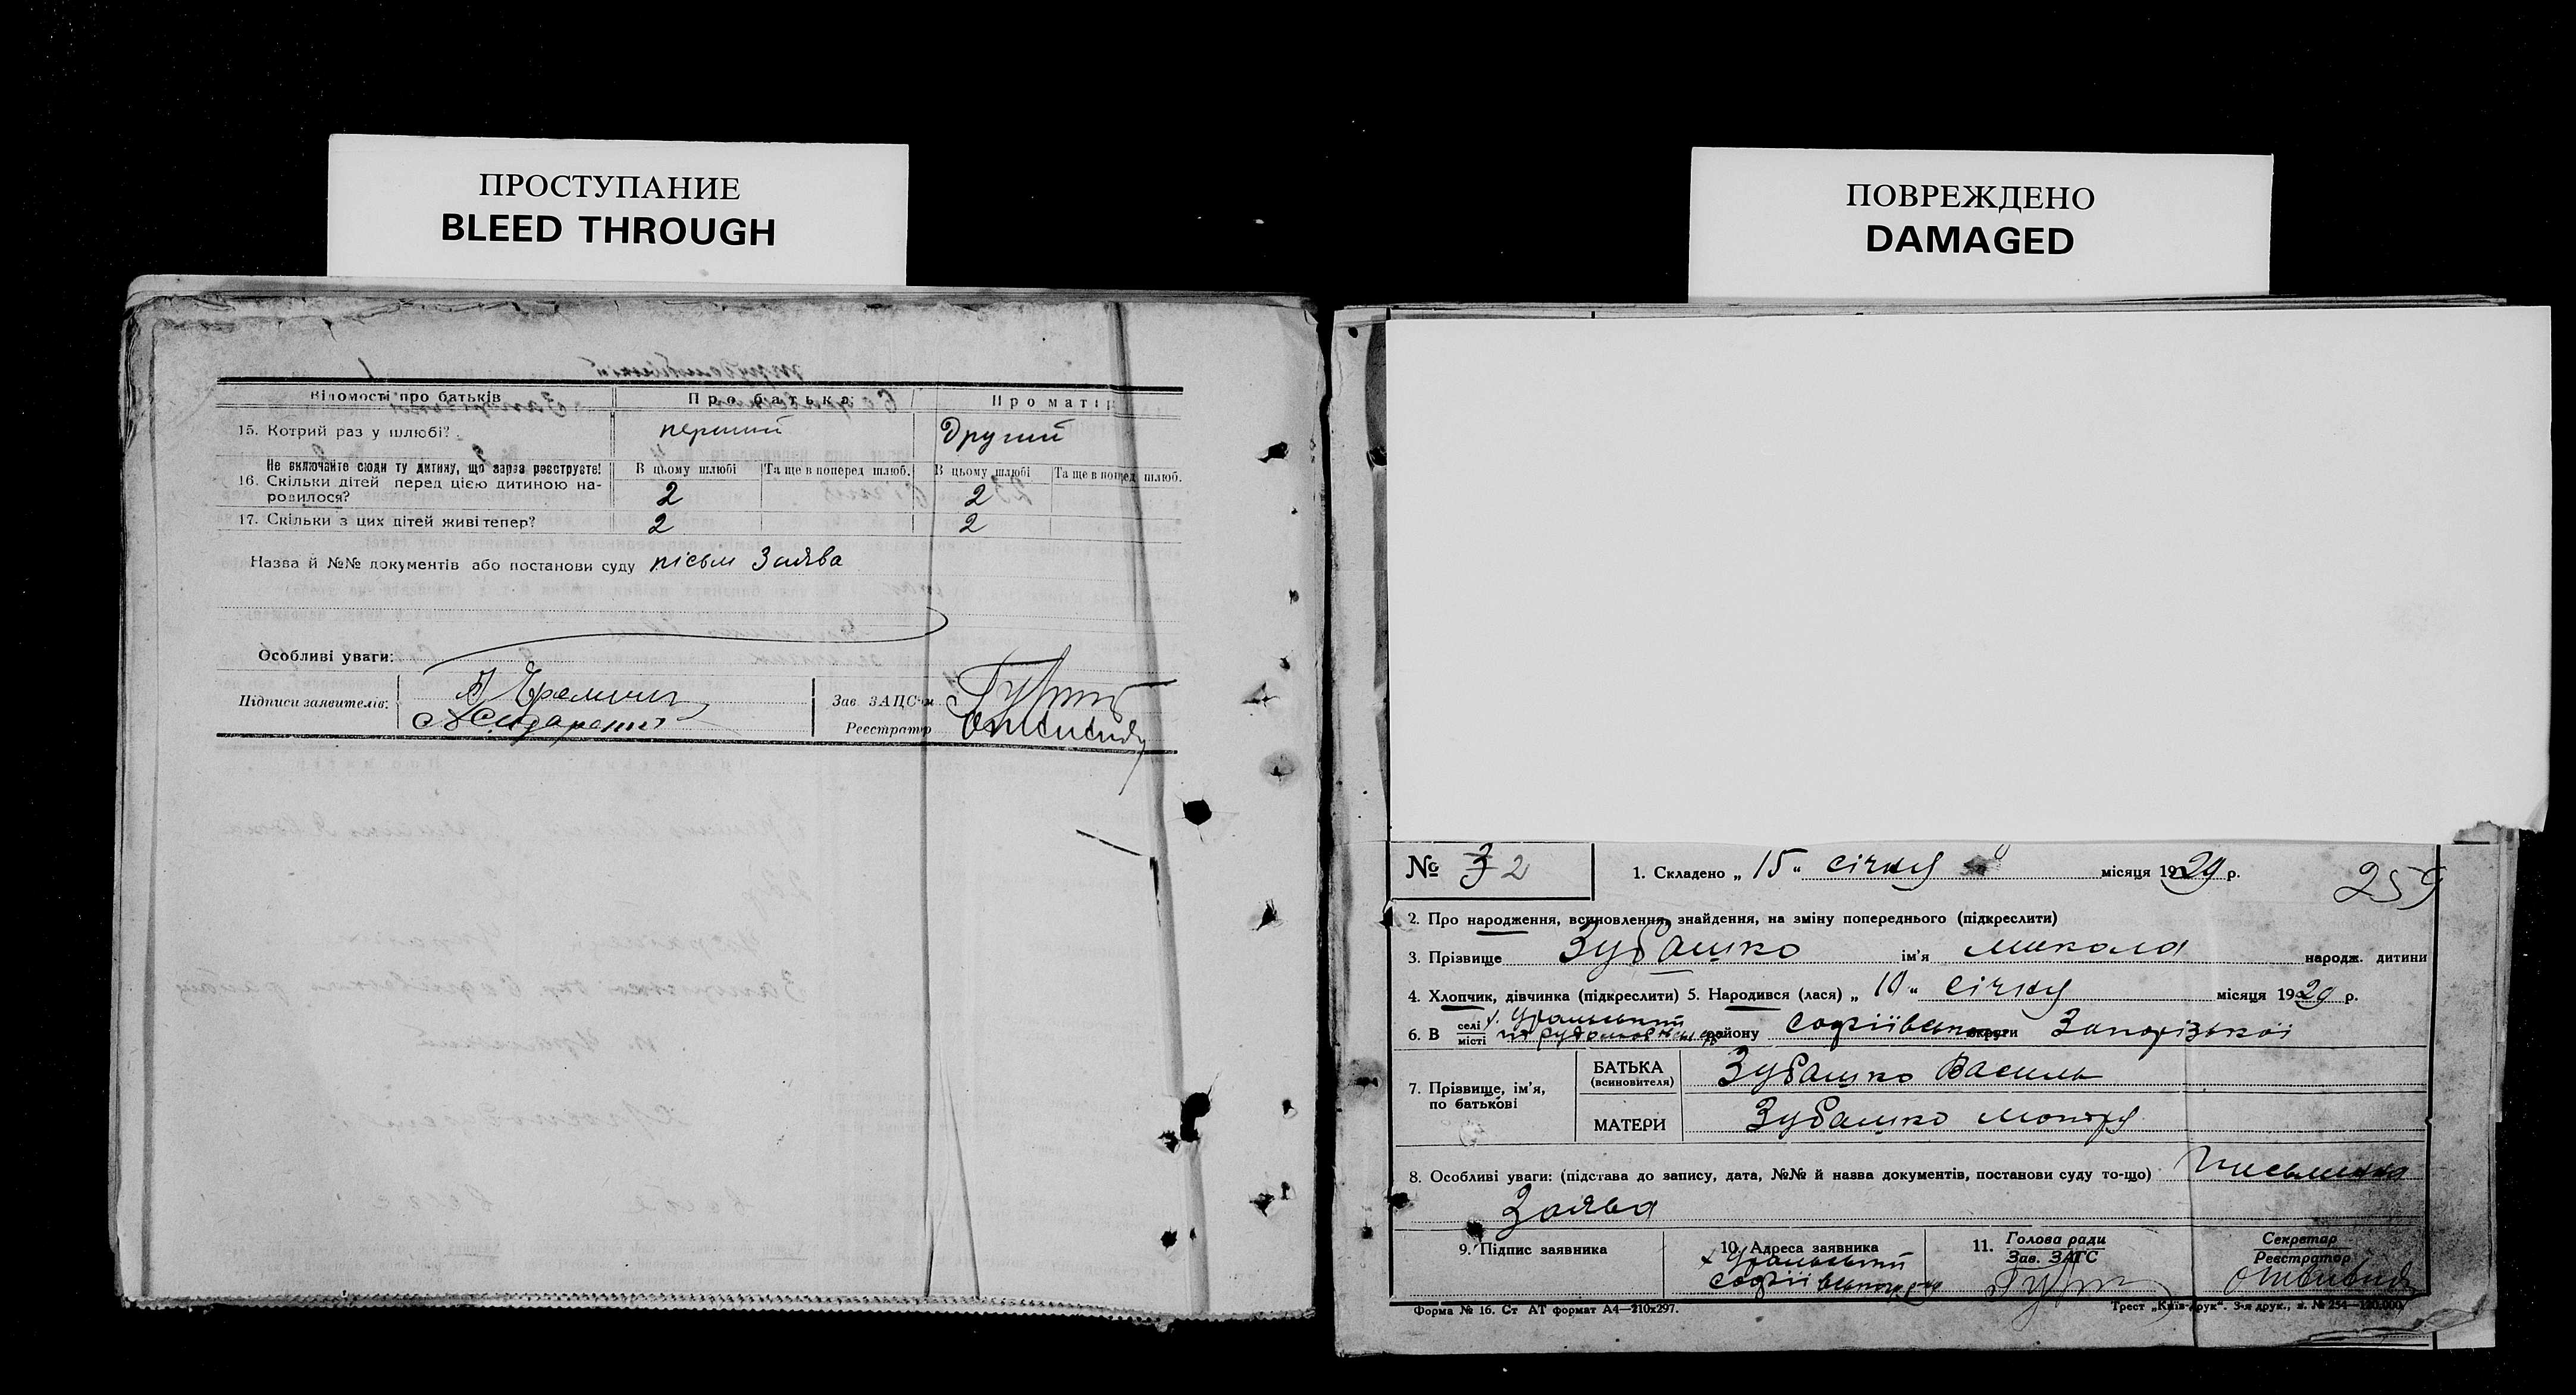 ПРОСТУПАНИЕ
BLEED THROUGH
Відомості про батьків
Про батька
Про матір
15. Котрий раз у шлюбі?
перший
Другий
Не включайте сюди ту дитину, що зараз реєструєте!
16. Скільки дітей перед цією дитиною на-
родилося?
В цьому шлюбі
Та ще в поперед шлюб.
В цьому шлюбі
Та ще в поперед шлюб.
2
2
17. Скільки з цих дітей живі тепер?
2
2
Назва й №№ документів або постанови суду пісьм Заява
Особливі уваги:
Підписи заявителів:
Зав ЗАЦС'м
Реєстратор
ПОВРЕЖДЕНО
DAMAGED
№ 32
1. Складено „ 15 “ січня місяця 1929 р.
259
2. Про народження, всиновлення, знайдення, на зміну попереднього (підкреслити)
3. Прізвище Зубашко ім'я Микола народж. дитини
4. Хлопчик, дівчинка (підкреслити) 5. Народився (лася) „ 10 “ січня місяця 1929 р.
6. В селі місті х. Уральський району Софіївського округи Запорізької
7. Прізвище, ім'я,
по батькові
БАТЬКА
(всиновителя)
Зубашко Василь
МАТЕРИ
Зубашко
8. Особливі уваги: (підстава до запису, дата, №№ й назва документів, постанови суду то-що) Письменна
Заява
9. Підпис заявника
10. Адреса заявника
х Уральський
Софіївського р-ну
11. Голова ради
Зав. ЗАГС
Секретар
Реєстратор
Форма № 16. Ст АТ формат А4—210х297.
Трест „Київ-друк“. 3-я друк., з. № 254—120.000